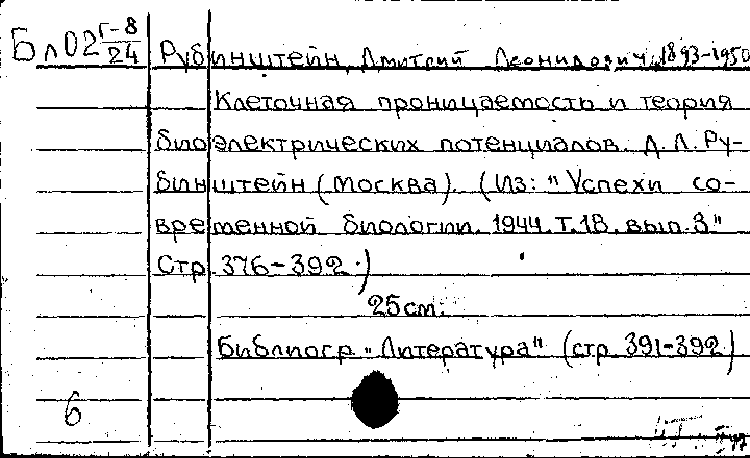 Бл02 Г-8/24 Рубинштейн, Дмитрий Леонидович, 1893-1950
Клеточная проницаемость и теория
биоэлектрических потенциалов. Д. Л. Ру-
бинштейн (Москва). (Из: "Успехи со-
временной биологии. 1944. Т.18, вып. 3"
Стр. 376-392.)
25 см.
Библиогр. "Литература" (стр. 391-392)
6